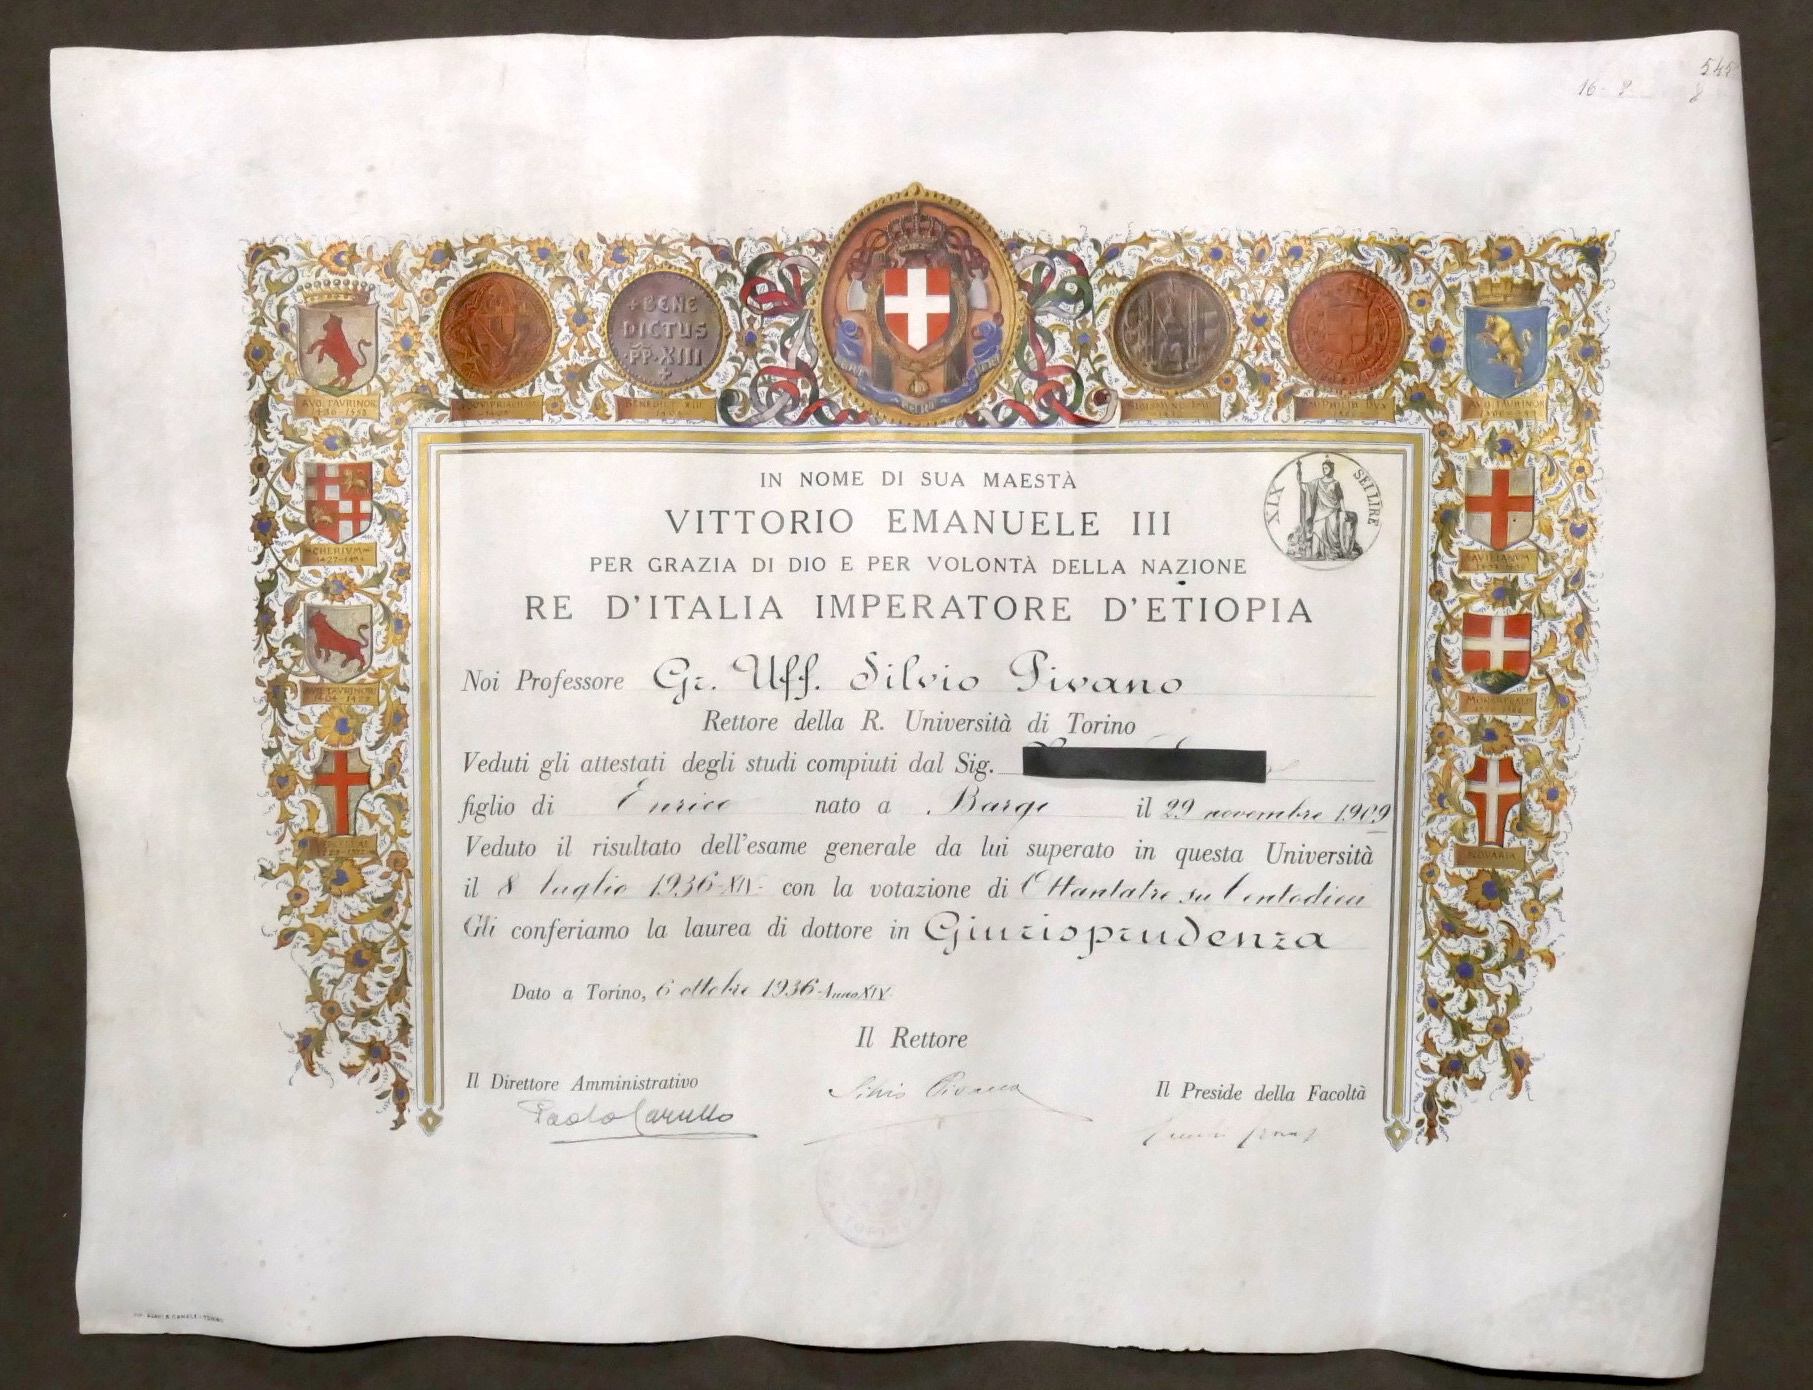 16 8
+ BENE
DICTUS
·PP·XIII
AVG. TAVRINOR
1436-1458
BENEDICT XIII
FERT
CHERIVM
1427-1434
AVG. TAVRINOR
1404-1427
NOVARIA
IN NOME DI SUA MAESTÀ
VITTORIO EMANUELE III
PER GRAZIA DI DIO E PER VOLONTÀ DELLA NAZIONE
RE D'ITALIA IMPERATORE D'ETIOPIA
XIX SEI LIRE
Noi Professore Gr. Uff. Silvio Pivano
Rettore della R. Università di Torino
Veduti gli attestati degli studi compiuti dal Sig.
figlio di Enrico nato a Barge il 29 novembre 1909
Veduto il risultato dell'esame generale da lui superato in questa Università
il 8 luglio 1936-XIV- con la votazione di Ottantatre su Centodieci
Gli conferiamo la laurea di dottore in Giurisprudenza
Dato a Torino, 6 ottobre 1936-Anno XIV-
Il Rettore
Il Direttore Amministrativo
Silvio Pivano
Il Preside della Facoltà
Paolo Carullo
TORINO